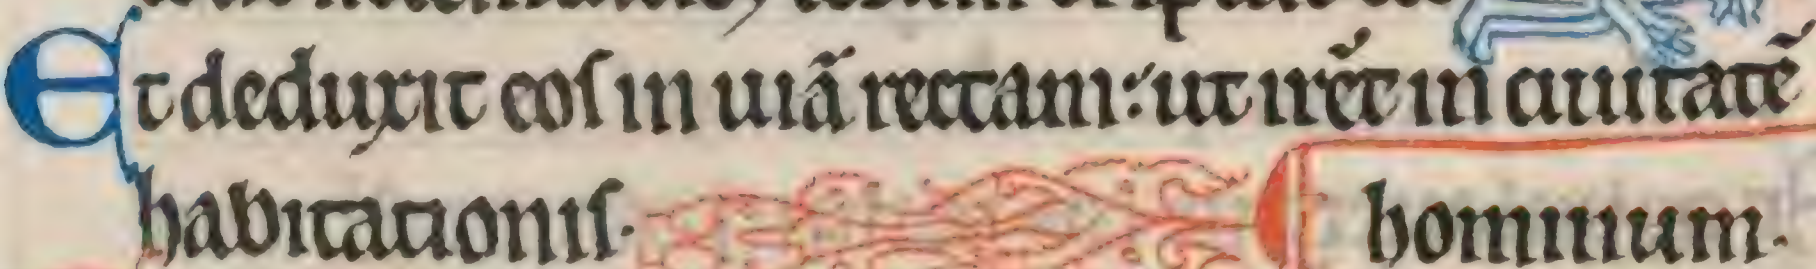 Et deduxit eoſ in uiā rectam: ut irēt in ciuitatē
habitationiſ. hominum.